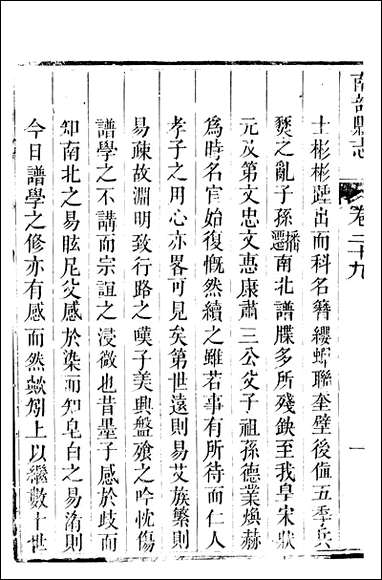 南部縣志
卷二十九
一
士彬彬踵出而科名簪纓蟬聯奎壁後值五季兵
燹之亂子孫播遷南北譜牒多所殘缺至我皇宋狀
元及第文忠文惠康肅三公父子祖孫德業煥赫
為時名宦始復慨然續之雖若事有所待而仁人
孝子之用心亦畧可見矣第世遠則易艾族繁則
易疎故淵明致行路之嘆子美興盤飱之吟忱傷
譜學之不講而宗誼之浸微也昔墨子感於歧而
知南北之易眩尼父感於染而知皂白之易淆則
今日譜學之修亦有感而然歟矧上以繼數十世